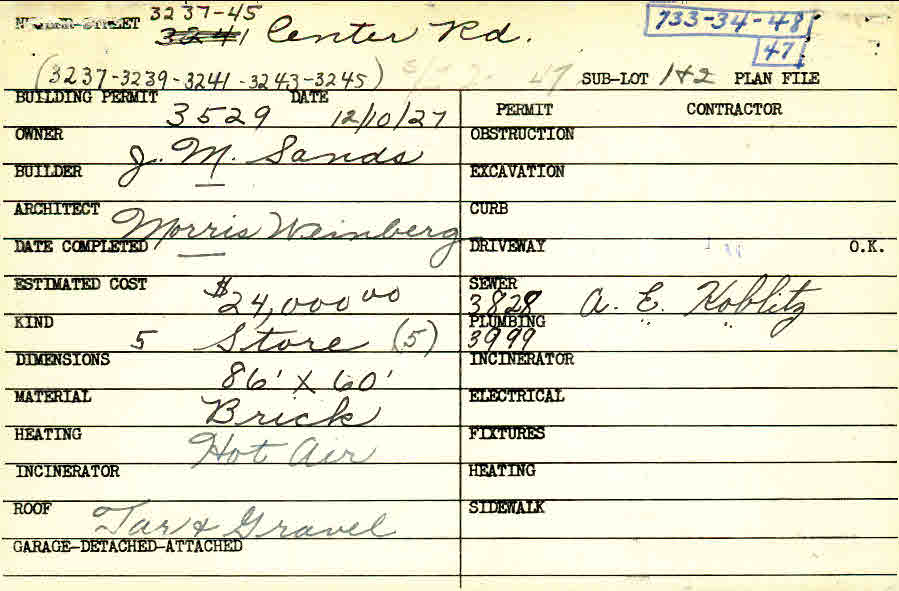 NUMBER-STREET 3237-45
3241 Center Rd.
733-34-48
47
(3237-3239-3241-3243-3245) 47 SUB-LOT 1+2 PLAN FILE
BUILDING PERMIT 3529 DATE 12/10/27
OWNER J. M. Sands
BUILDER —
ARCHITECT Morris Weinberg
DATE COMPLETED —
ESTIMATED COST $24,000 00
KIND 5 Store (5)
DIMENSIONS 86' x 60'
MATERIAL Brick
HEATING Hot Air
INCINERATOR
ROOF Tar & Gravel
GARAGE-DETACHED-ATTACHED
PERMIT CONTRACTOR
OBSTRUCTION
EXCAVATION
CURB
DRIVEWAY O.K.
SEWER 3828 A. E. Koblitz
PLUMBING 3999 " "
INCINERATOR
ELECTRICAL
FIXTURES
HEATING
SIDEWALK